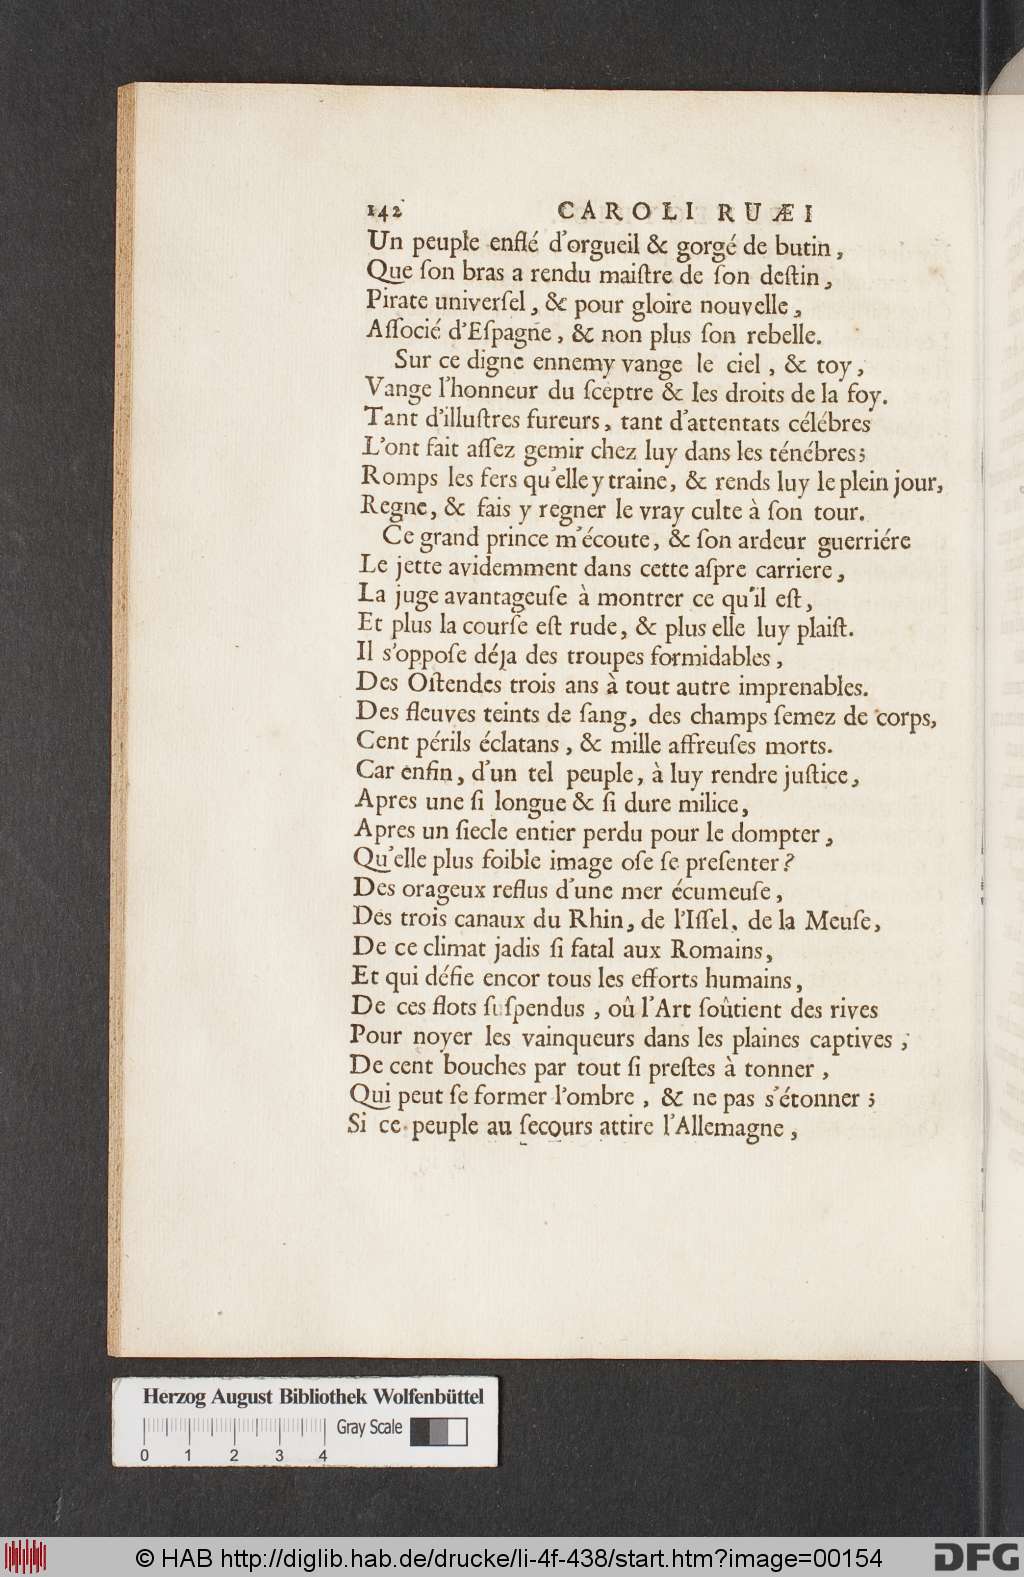 142 CAROLI RUÆI
Un peuple enflé d'orgueil & gorgé de butin,
Que ſon bras a rendu maiſtre de ſon deſtin,
Pirate univerſel, & pour gloire nouvelle,
Aſſocié d'Eſpagne, & non plus ſon rebelle.
Sur ce digne ennemy vange le ciel, & toy,
Vange l'honneur du ſceptre & les droits de la foy.
Tant d'illuſtres fureurs, tant d'attentats célébres
L'ont fait aſſez gemir chez luy dans les ténébres;
Romps les fers qu'elle y traine, & rends luy le plein jour,
Regne, & fais y regner le vray culte à ſon tour.
Ce grand prince m'écoute, & ſon ardeur guerriére
Le jette avidemment dans cette aſpre carriere,
La juge avantageuſe à montrer ce qu'il eſt,
Et plus la courſe eſt rude, & plus elle luy plaiſt.
Il s'oppoſe déja des troupes formidables,
Des Oſtendes trois ans à tout autre imprenables.
Des fleuves teints de ſang, des champs ſemez de corps,
Cent périls éclatans, & mille affreuſes morts.
Car enfin, d'un tel peuple, à luy rendre juſtice,
Apres une ſi longue & ſi dure milice,
Apres un ſiecle entier perdu pour le dompter,
Qu'elle plus foible image oſe ſe preſenter?
Des orageux reflus d'une mer écumeuſe,
Des trois canaux du Rhin, de l'Iſſel, de la Meuſe,
De ce climat jadis ſi fatal aux Romains,
Et qui défie encor tous les efforts humains,
De ces flots ſuſpendus, où l'Art ſoûtient des rives
Pour noyer les vainqueurs dans les plaines captives;
De cent bouches par tout ſi preſtes à tonner,
Qui peut ſe former l'ombre, & ne pas s'étonner;
Si ce peuple au ſecours attire l'Allemagne,
Herzog August Bibliothek Wolfenbüttel
Gray Scale
0 1 2 3 4
© HAB http://diglib.hab.de/drucke/li-4f-438/start.htm?image=00154
DFG